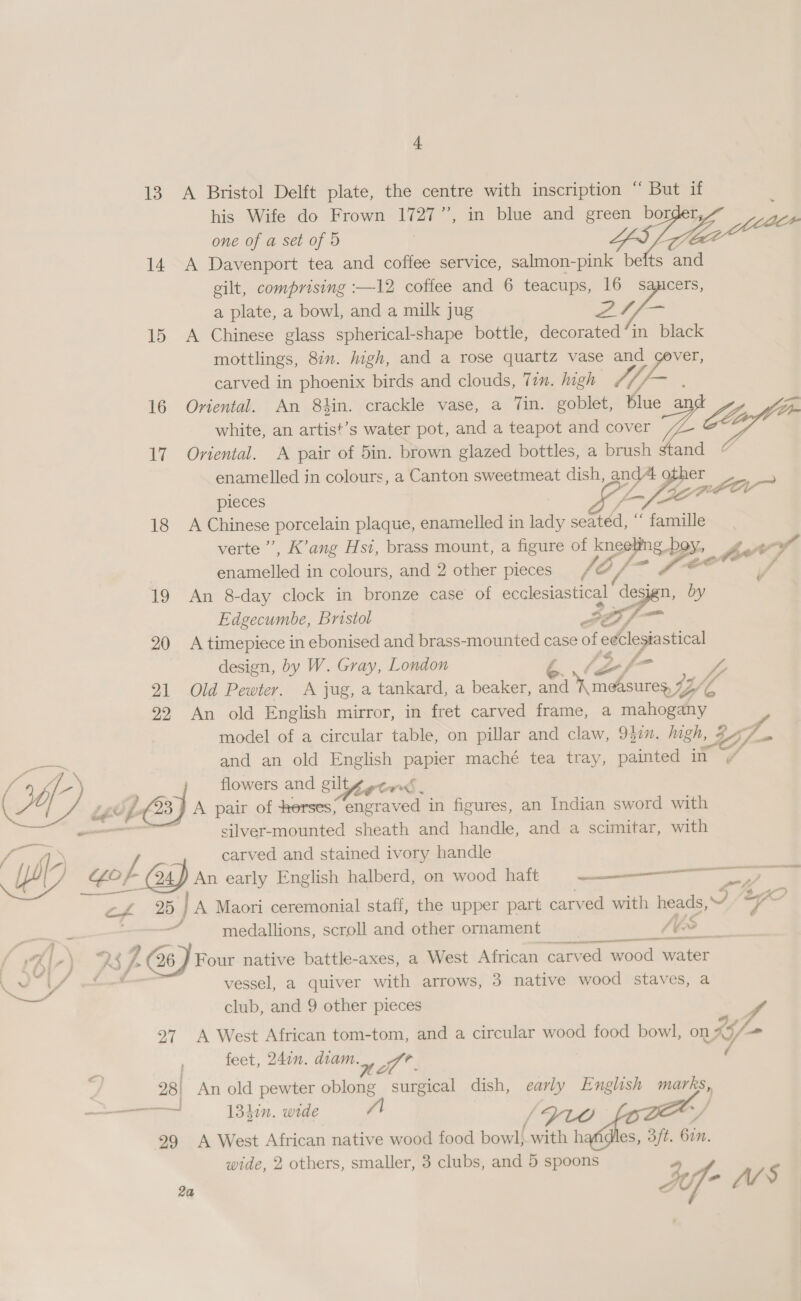 4
13 A Bristol Delft plate, the centre with inscription “ But if
his Wife do Frown 1727 ”, in blue and green border,
one of a set of 5
14 A Davenport tea and coffee service, salmon-pink belts and
gilt, comprising :—12 coffee and 6 teacups, 16 saucers,
a plate, a bowl, and a milk jug 21/-
15 A Chinese glass spherical-shape bottle, decorated in black
mottlings, 8in. high, and a rose quartz vase and cover,
carved in phoenix birds and clouds, 7in. high
16 Oriental. An 8½in. crackle vase, a 7in. goblet, blue and
white, an artist’s water pot, and a teapot and cover
17 Oriental. A pair of 5in. brown glazed bottles, a brush stand
enamelled in colours, a Canton sweetmeat dish, and 4 other
pieces
18 A Chinese porcelain plaque, enamelled in lady seated, “ famille
verte ”, K’ang Hsi, brass mount, a figure of kneeling boy,
enamelled in colours, and 2 other pieces
19 An 8-day clock in bronze case of ecclesiastical design, by
Edgecumbe, Bristol
20 A timepiece in ebonised and brass-mounted case of ecclesiastical
design, by W. Gray, London
21 Old Pewter. A jug, a tankard, a beaker, and measures,
22 An old English mirror, in fret carved frame, a mahogany
model of a circular table, on pillar and claw, 9½in. high,
and an old English papier maché tea tray, painted in
flowers and gilt
23 A pair of horses, engraved in figures, an Indian sword with
silver-mounted sheath and handle, and a scimitar, with
carved and stained ivory handle
24 An early English halberd, on wood haft
25 A Maori ceremonial staff, the upper part carved with heads,
medallions, scroll and other ornament
26 Four native battle-axes, a West African carved wood water
vessel, a quiver with arrows, 3 native wood staves, a
club, and 9 other pieces
27 A West African tom-tom, and a circular wood food bowl, on
feet, 24in. diam.
28 An old pewter oblong surgical dish, early English marks,
13½in. wide
29 A West African native wood food bowl, with handles, 3ft. 6in.
wide, 2 others, smaller, 3 clubs, and 5 spoons
2a NS